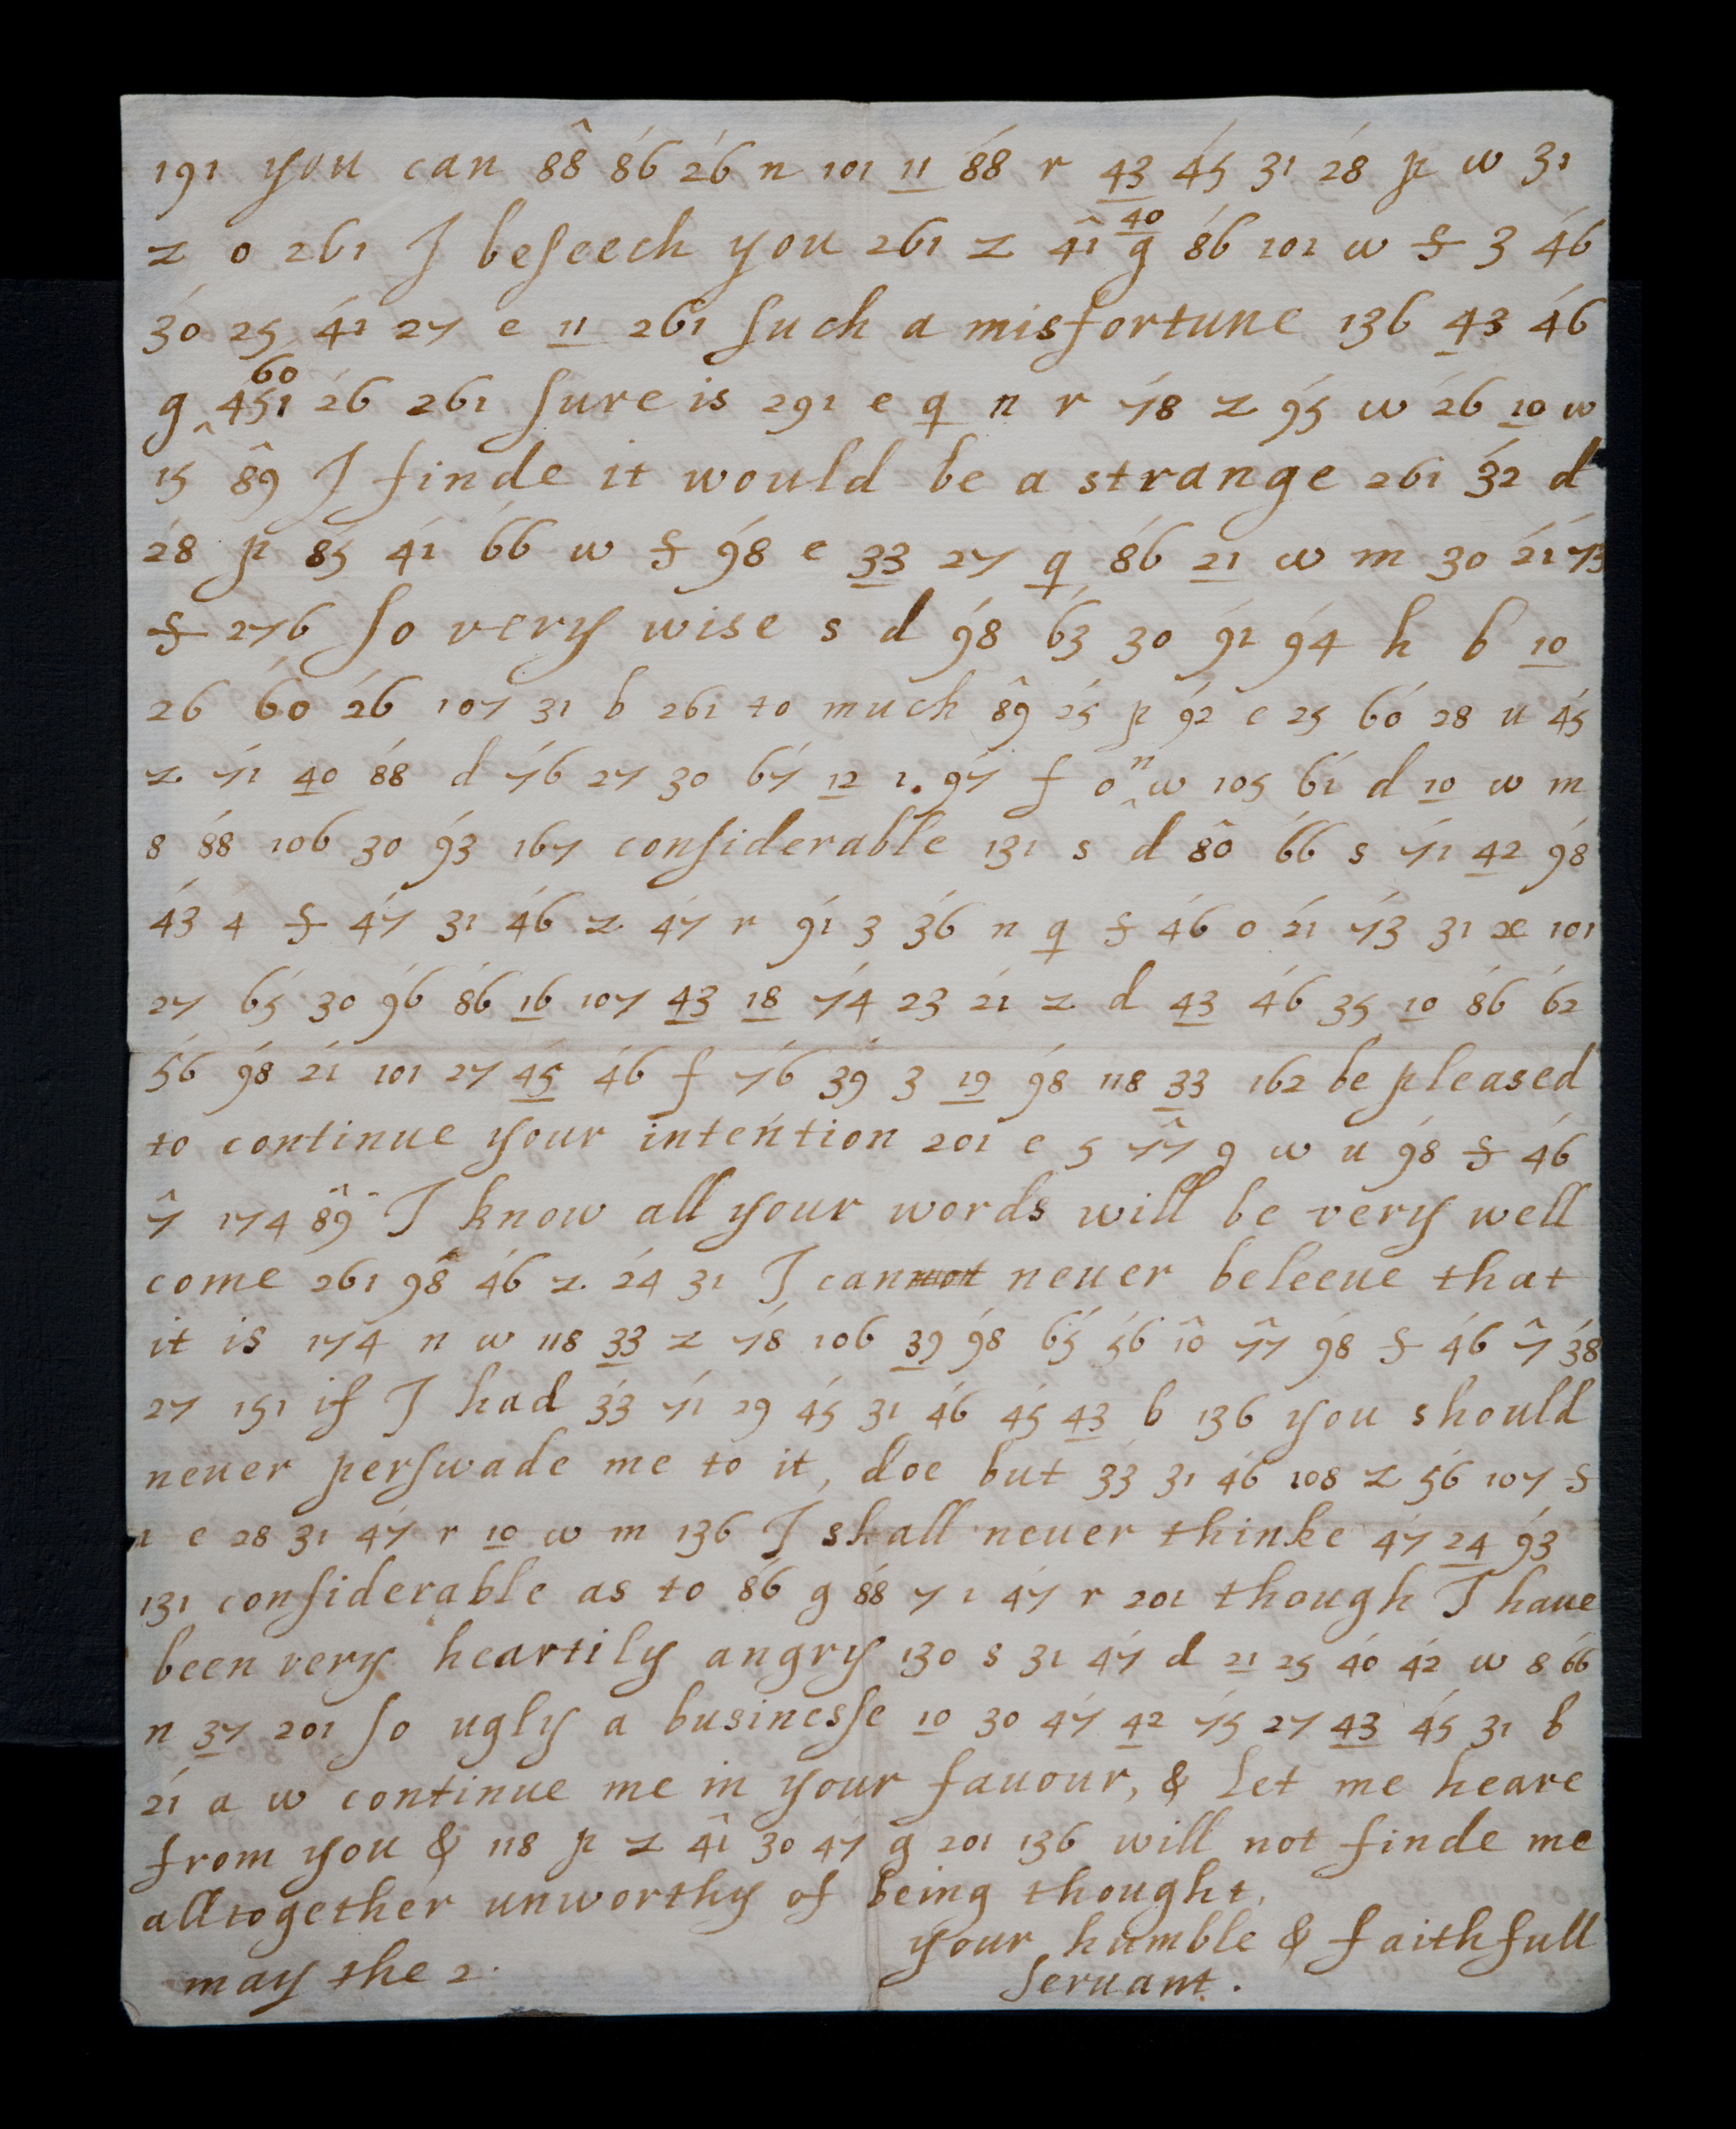 191 you can 88̂ 8́6 2́6 n 101 11 8́8 r 43 4́5 31 2́8 p w 31
z o 261 I beseech you 261 z 4̂1 40 g 8́6 101 w f 3 4́6
3́0 25 4́1 27 e 11 261 such a misfortune 136 43 4́6
g 60 451 2́6 261 sure is 291 e q n r 7́8 z 9́5 w 2́6 10 w
15 8̂9 I finde it would be a strange 261 3́2 d
2́8 p 8́5 4́1 6́6 w f 9́8 e 33 27 q 8́6 21 w m 30 2́1 7́3
f 276 so very wise s d 9́8 6́3 30 9́2 9́4 h b 10
26 6́0 2́6 107 31 b 261 to much 8̂9 2́5 p 9́2 e 25 6́0 28 u 4́5
z 7́1 40 8́8 d 7́6 27 30 6́7 12 1. 9́7 f o n w 105 6́1 d 10 w m
8 8́8 106 30 9́3 167 considerable 131 s d 8̂0 6́6 s 7́1 42 9́8
4́3 4 f 4́7 31 4́6 z 4́7 r 9́1 3 3́6 n q f 4́6 o 2́1 7́3 31 x 101
27 6́5 30 9́6 8́6 16 107 43 18 7́4 23 2́1 z d 43 4́6 35 10 8́6 6́2
5́6 9́8 2́1 101 27 45 4́6 f 7́6 3́9 3 19 9́8 118 33 162 be pleased
to continue your intention 201 e 5 7̂7 9 w u 9́8 f 4́6
7̂ 174 8̂9 I know all your words will be very well
come 261 9̂8 4́6 z 2́4 31 I can neuer beleeue that
it is 174 n w 118 33 z 7́8 106 39 9́8 6́5 5́6 1̂0 7̂7 9́8 f 4́6 7̂ 3́8
27 151 if I had 3́3 7́1 29 4́5 31 4́6 4́5 43 b 136 you should
neuer perswade me to it, doe but 3́3 31 4́6 108 z 5́6 107 f
e 28 31 4́7 r 10 w m 136 I shall neuer thinke 4́7 24 9́3
131 considerable as to 8́6 g 8́8 7 1 4́7 r 201 though I haue
been very heartily angry 130 s 31 4́7 d 21 25 4́0 4́2 w 8 6́6
n 37 201 so ugly a businesse 10 30 4́7 42 7́5 27 43 4́5 31 b
2́1 a w continue me in your fauour, & let me heare
from you & 118 p z 4̂1 30 4́7 g 201 136 will not finde me
alltogether unworthy of being thought,
your humble & faithfull
may the 2.
seruant.